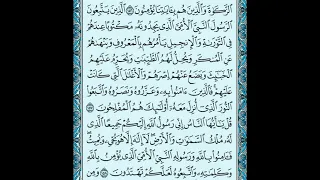 ٱلزَّكَوٰةَ وَٱلَّذِينَ هُم بِـَٔايَٰتِنَا يُؤْمِنُونَ ۝ ٱلَّذِينَ يَتَّبِعُونَ
ٱلرَّسُولَ ٱلنَّبِىَّ ٱلْأُمِّىَّ ٱلَّذِى يَجِدُونَهُۥ مَكْتُوبًا عِندَهُمْ
فِى ٱلتَّوْرَىٰةِ وَٱلْإِنجِيلِ يَأْمُرُهُم بِٱلْمَعْرُوفِ وَيَنْهَىٰهُمْ
عَنِ ٱلْمُنكَرِ وَيُحِلُّ لَهُمُ ٱلطَّيِّبَٰتِ وَيُحَرِّمُ عَلَيْهِمُ
ٱلْخَبَٰٓئِثَ وَيَضَعُ عَنْهُمْ إِصْرَهُمْ وَٱلْأَغْلَٰلَ ٱلَّتِى كَانَتْ
عَلَيْهِمْ فَٱلَّذِينَ ءَامَنُوا۟ بِهِۦ وَعَزَّرُوهُ وَنَصَرُوهُ وَٱتَّبَعُوا۟
ٱلنُّورَ ٱلَّذِىٓ أُنزِلَ مَعَهُۥٓ أُو۟لَٰٓئِكَ هُمُ ٱلْمُفْلِحُونَ ۝
قُلْ يَٰٓأَيُّهَا ٱلنَّاسُ إِنِّى رَسُولُ ٱللَّهِ إِلَيْكُمْ جَمِيعًا ٱلَّذِى
لَهُۥ مُلْكُ ٱلسَّمَٰوَٰتِ وَٱلْأَرْضِ لَآ إِلَٰهَ إِلَّا هُوَ يُحْىِۦ وَيُمِيتُ
فَـَٔامِنُوا۟ بِٱللَّهِ وَرَسُولِهِ ٱلنَّبِىِّ ٱلْأُمِّىِّ ٱلَّذِى يُؤْمِنُ بِٱللَّهِ
وَكَلِمَٰتِهِۦ وَٱتَّبِعُوهُ لَعَلَّكُمْ تَهْتَدُونَ ۝ وَمِن